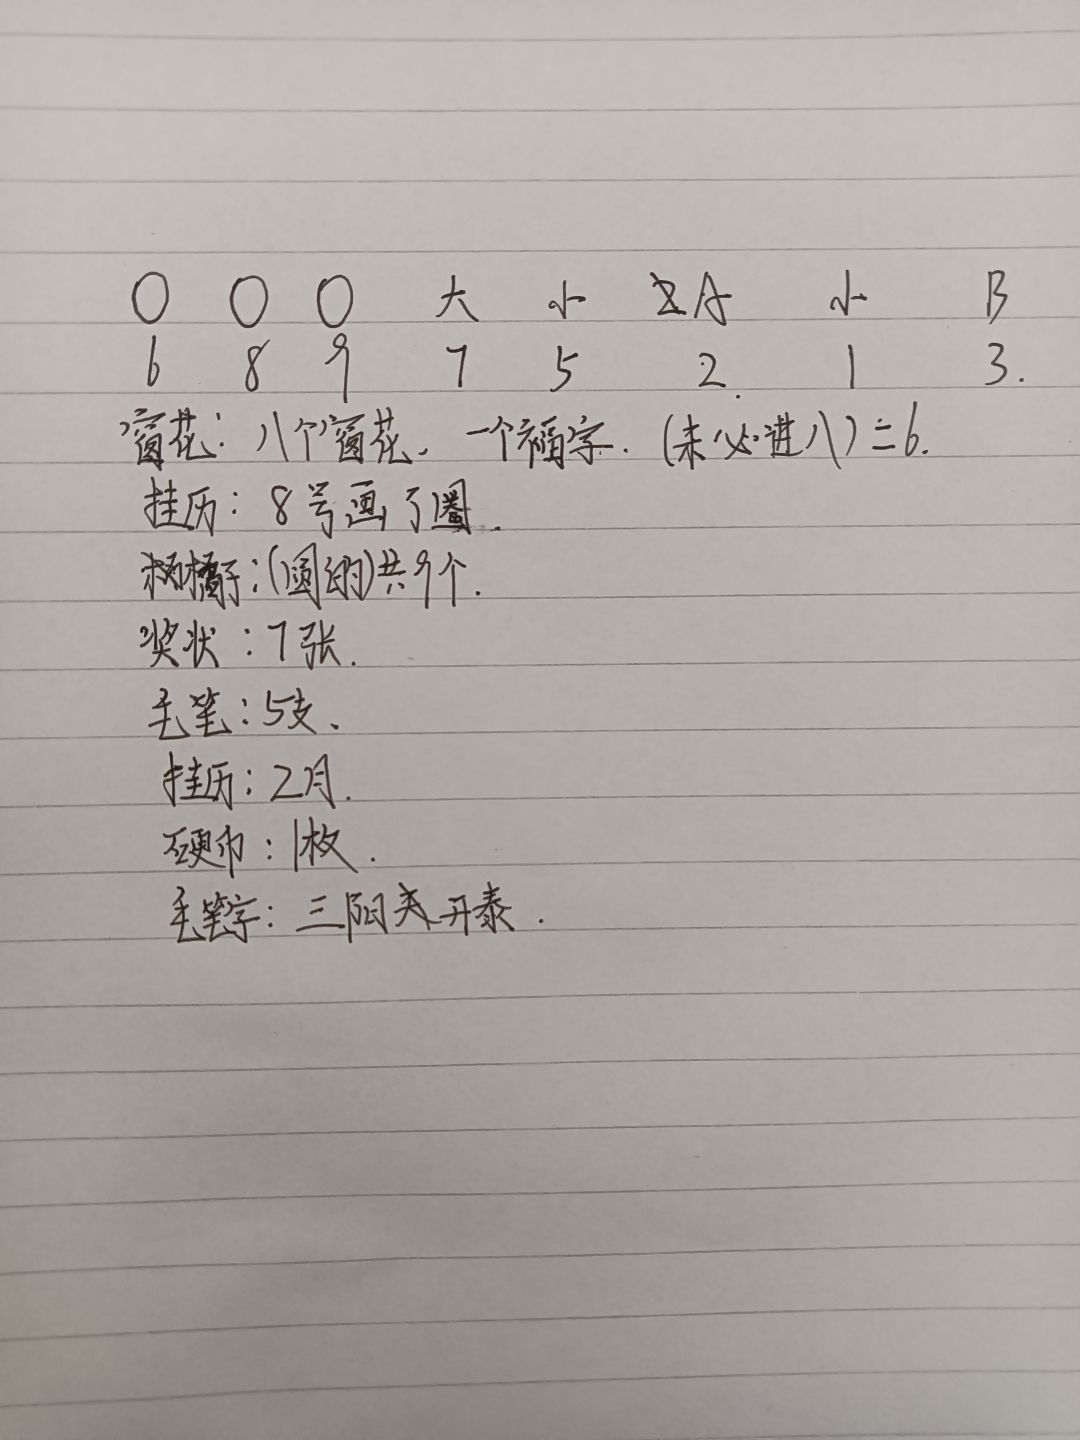 〇 〇 〇 大 小 A 小 B
6 8 9 7 5 2. 1 3.
窗花: 八个窗花. 一个福字. (未必进八)=6.
挂历: 8号画了圈.
橘子:(圆的)共9个.
奖状: 7张.
毛笔: 5支.
挂历: 2月.
硬币: 1枚.
毛笔字: 三阳开泰.